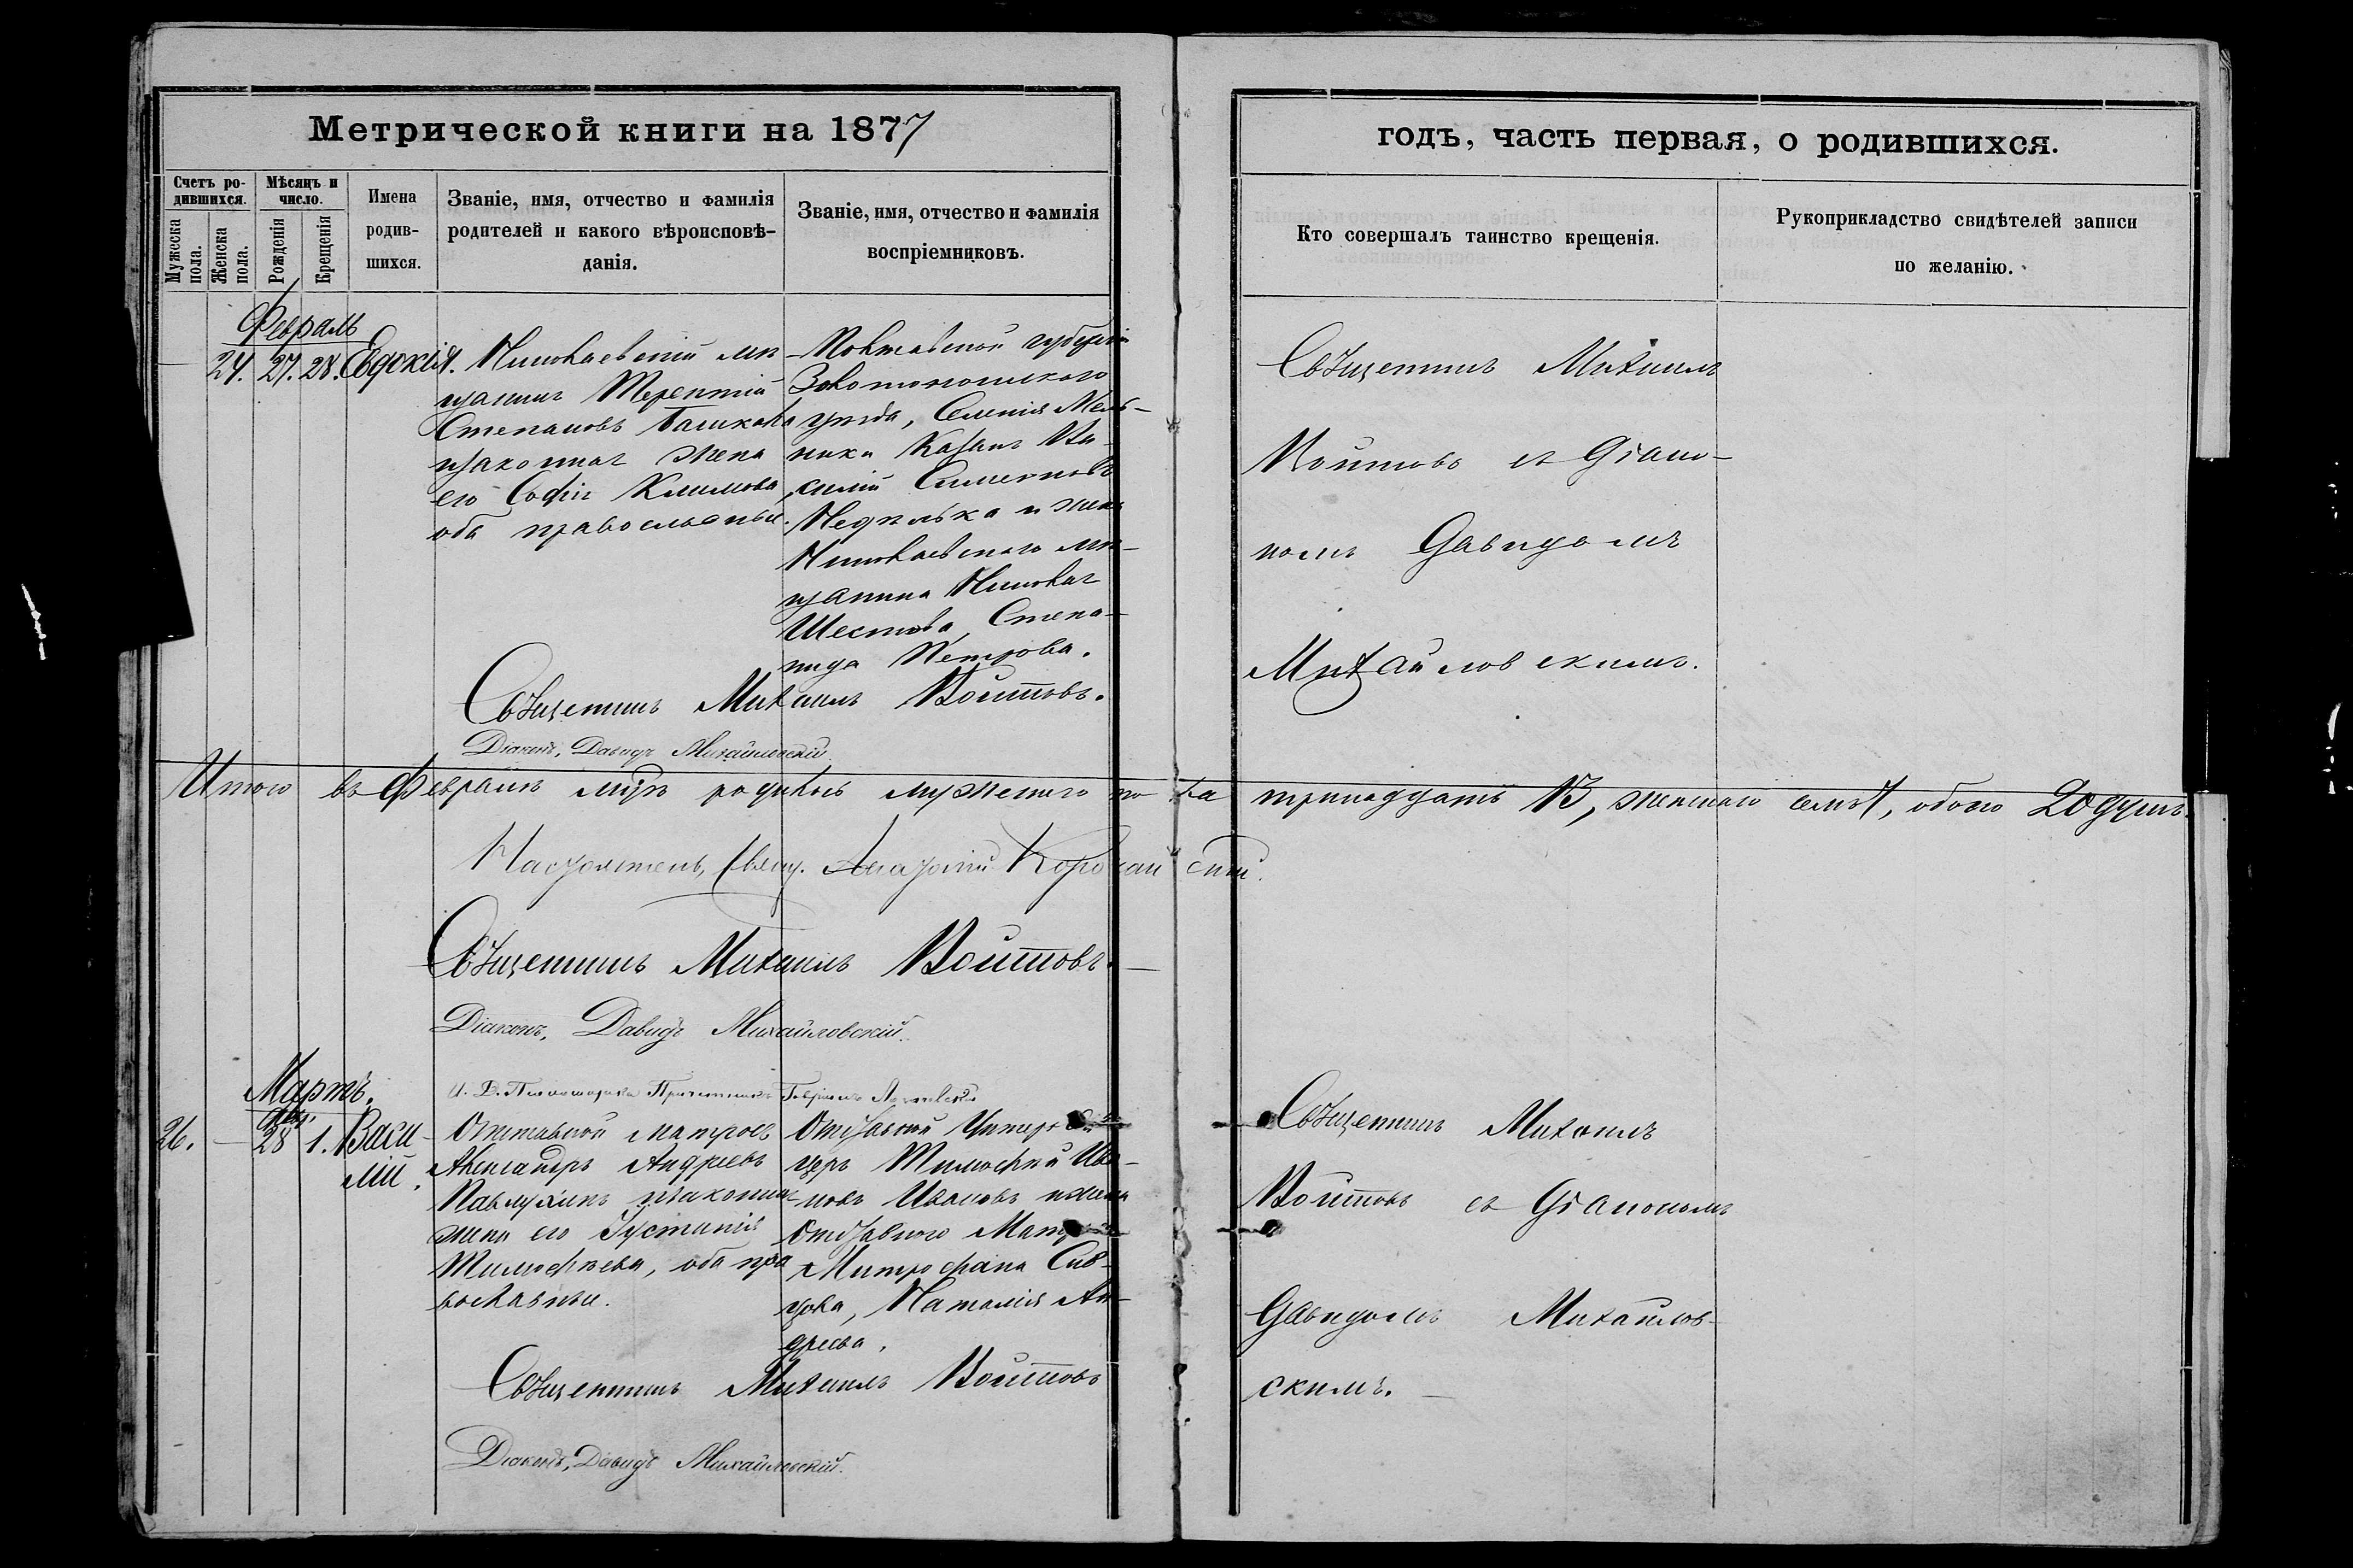 Метрической книги на 1877
годъ, часть первая, о родившихся.
Счетъ ро-
дившихся.
Мужеска
пола.
Женска
пола.
Мѣсяцъ и
число.
Рожденія
Крещенія
Имена
родив-
шихся.
Званіе, имя, отчество и фамилія
родителей и какого вѣроисповѣ-
данія.
Званіе, имя, отчество и фамилія
воспріемниковъ.
Кто совершалъ таинство крещенія.
Рукоприкладство свидѣтелей записи
по желанію.
Февраль
24. 27. 28. Евдокія.
Николаевскій мѣ-
щанинъ Терентій
Степановъ
законная жена
его Софія Климова
оба православные.
Полтавской губерніи
Золотоношскаго
уѣзда, Селенія Мель-
ники Казакъ Ва-
силій Симеоновъ
Недѣлька и жена
Николаевскаго мѣ-
щанина Николая
Шестова, Степа-
нида Петрова.
Священникъ Михаилъ
Войтовъ съ Діако-
номъ Давидомъ
Михайловскимъ.
Священникъ Михаилъ Войтовъ.
Діаконъ, Давидъ Михайловскій.
Итого въ Февралѣ мцѣ родилось мужескаго пола тринадцать 13, женскаго семь 7, обоего 20 душъ.
Настоятель, Свящ.
Священникъ Михаилъ Войтовъ.
Діаконъ, Давидъ Михайловскій.
И. Д. Псаломщика
Мартъ.
26. — 28 1. Васи-
лій.
Отставной матросъ
Александръ Андреевъ
законная
жена его Іустинія
Тимофѣева, оба пра
вославные.
Отставной Унтеръ
церъ Тимофей Ива-
новъ Ивановъ и жена
Отставного
Митрофана Сав-
цова, Наталія Ан-
дреева.
Священникъ Михаилъ
Войтовъ съ Діакономъ
Давидомъ Михайлов-
скимъ.
Священникъ Михаилъ Войтовъ
Діаконъ, Давидъ Михайловскій.